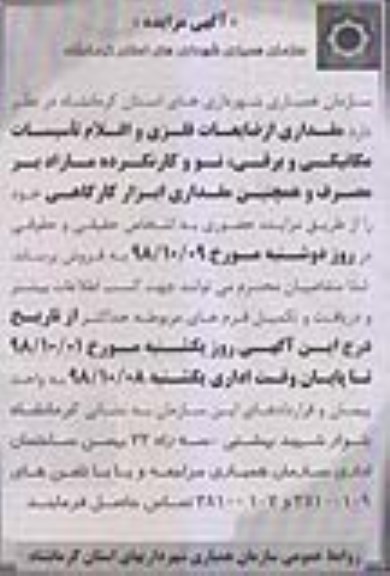 « آگهی مزایده »
سازمان همیاری شهرداری های استان کرمانشاه
سازمان همیاری شهرداری های استان کرمانشاه در نظر
دارد مقداری از ضایعات فلزی و اقلام تأسیسات
مکانیکی و برقی، نو و کارکرده مازاد بر
مصرف و همچنین مقداری ابزار کارگاهی خود
را از طریق مزایده حضوری به اشخاص حقیقی و حقوقی
در روز دوشنبه مورخ ۹۸/۱۰/۰۹ به فروش برساند.
لذا متقاضیان محترم می توانند جهت کسب اطلاعات بیشتر
و دریافت و تکمیل فرم های مربوطه حداکثر از تاریخ
درج این آگهی روز یکشنبه مورخ ۹۸/۱۰/۰۱
تا پایان وقت اداری یکشنبه ۹۸/۱۰/۰۸ به واحد
پیمان و قراردادهای این سازمان به نشانی کرمانشاه
بلوار شهید بهشتی - سه راه ۲۲ بهمن ساختمان
اداری سازمان همیاری مراجعه و یا با تلفن های
تماس حاصل فرمایند
روابط عمومی سازمان همیاری شهرداریهای استان کرمانشاه